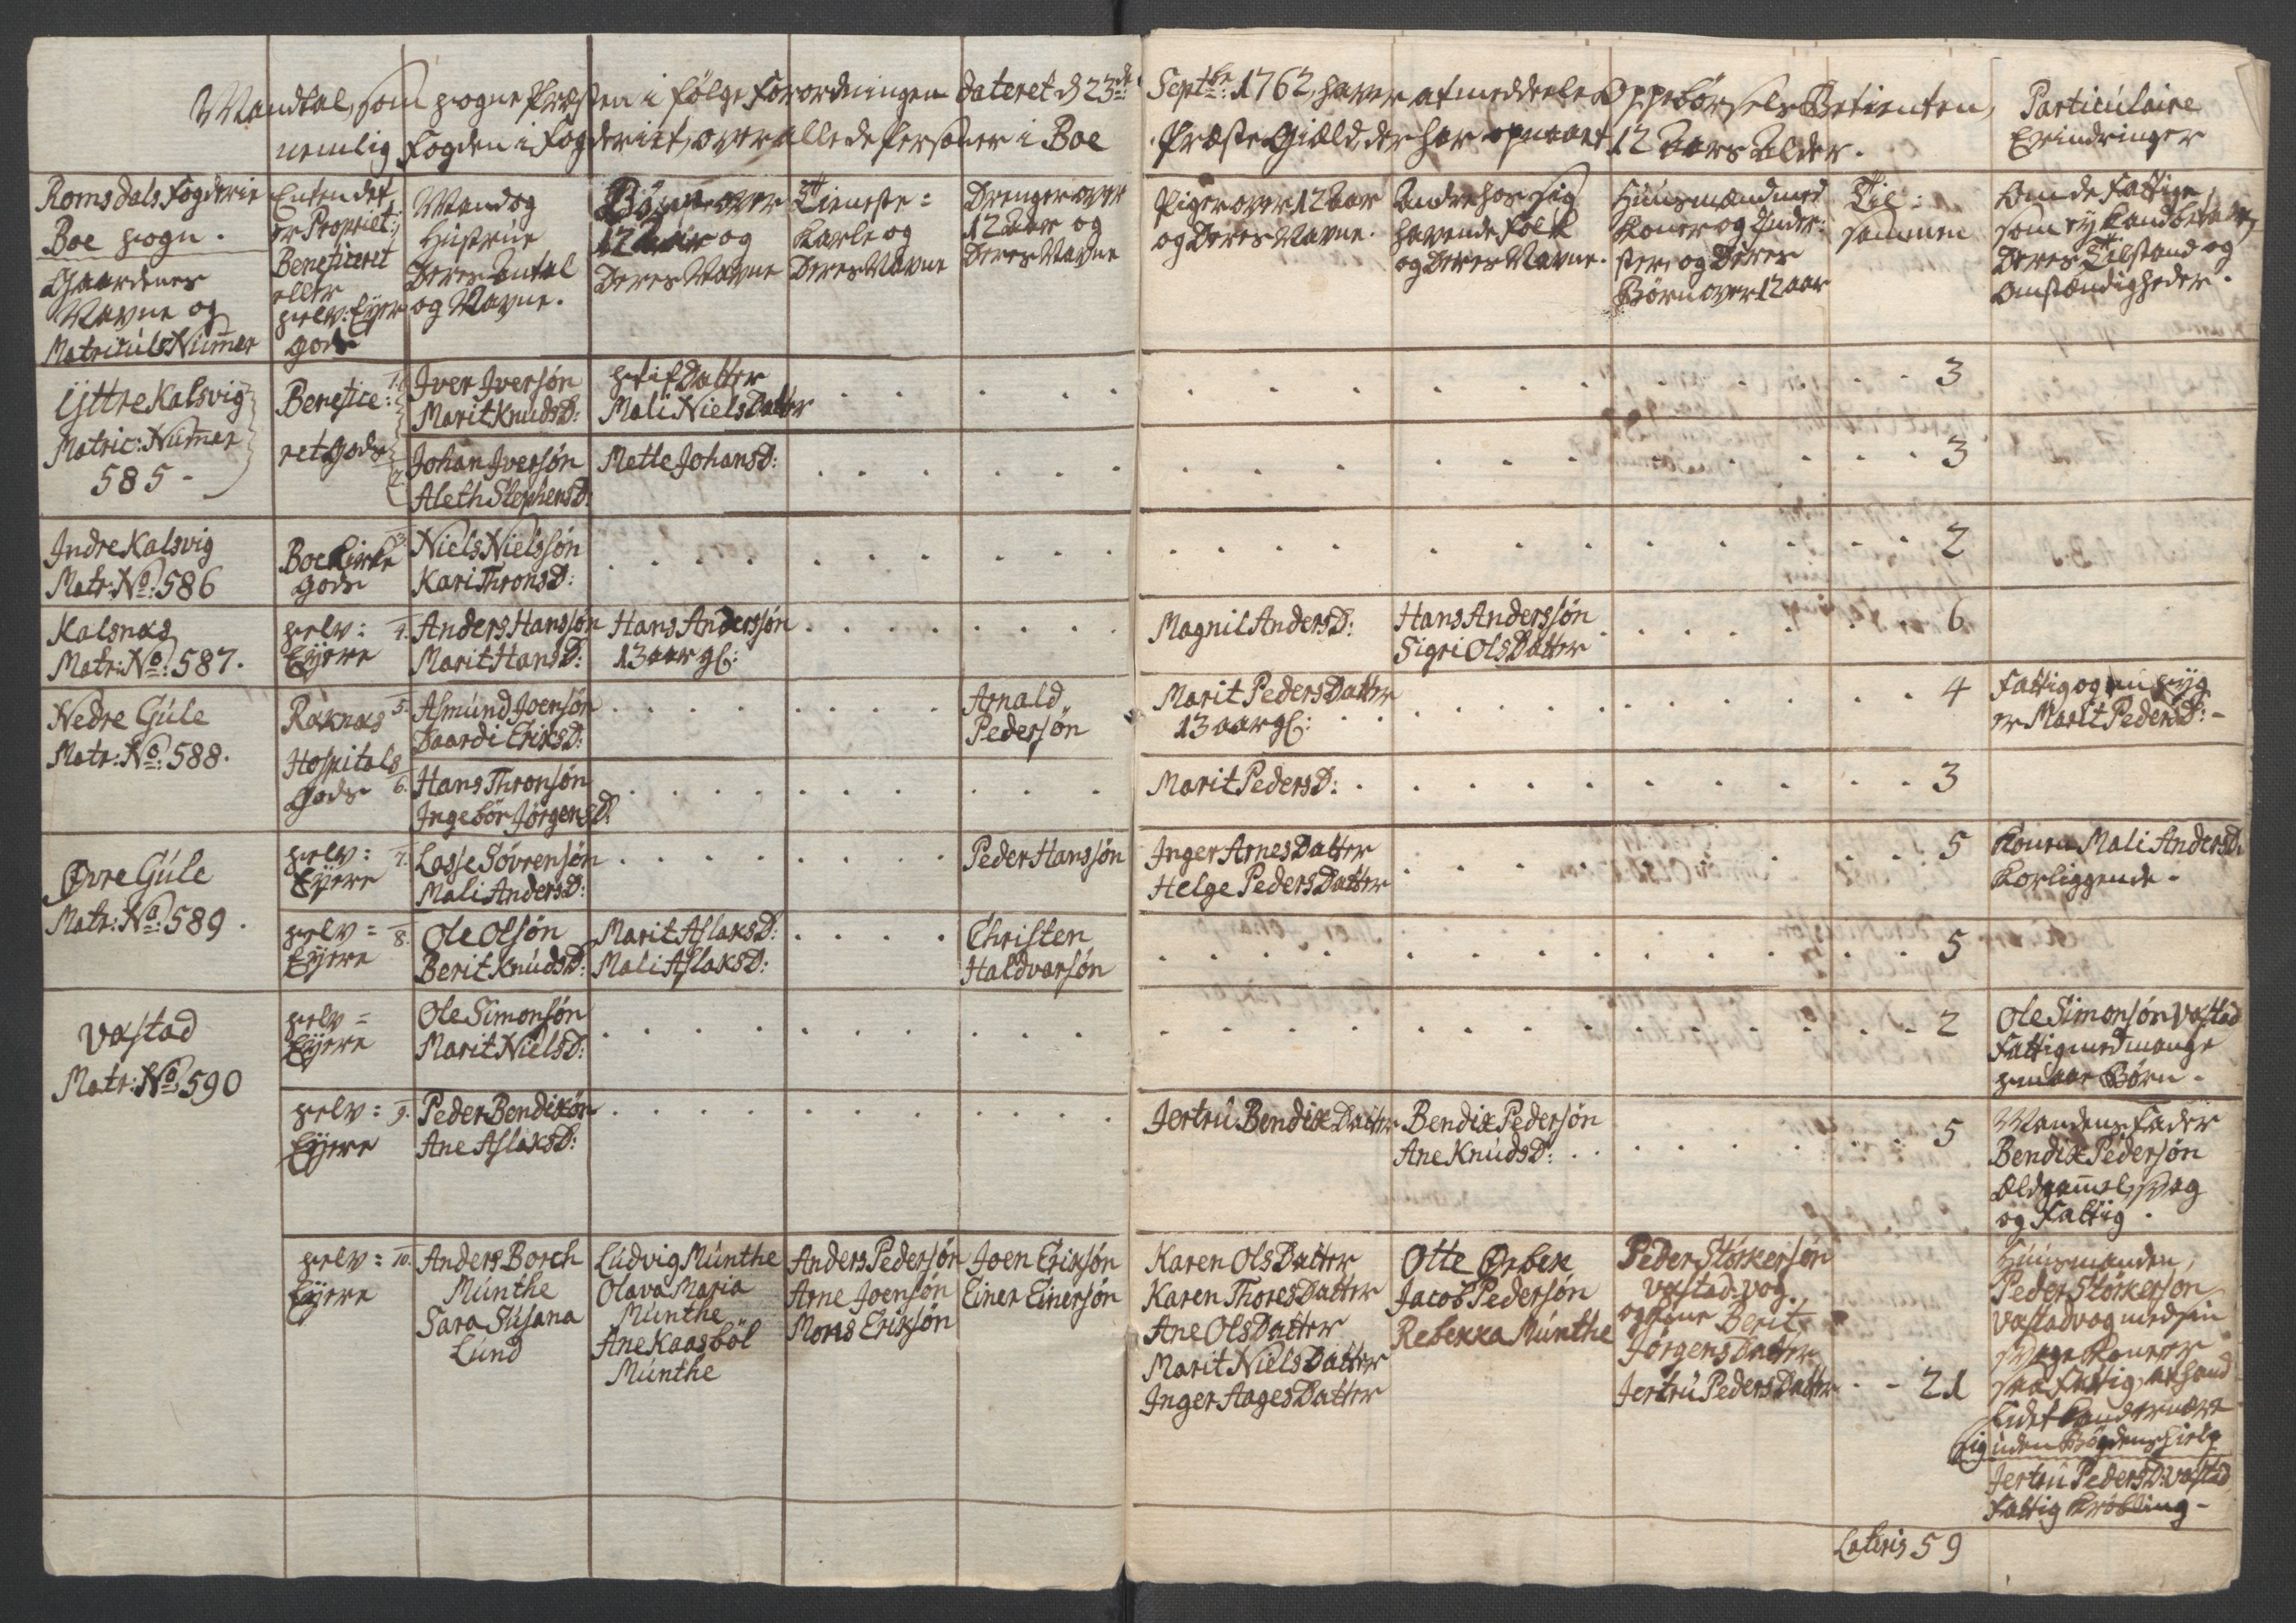 Mandtal, som Sogne Præsten i følge Forordningen dateret d 23de Septbr: 1762, haver at meddeele Oppebørsels Betienten,
nemlig Fogden i Fogderiet, over alle de Personer i Boe Præste Giæld, der har opnaaet 12 Aars Alder.
Particulaire
Erindringer
Romsdals Fogderie
Boe Sogn.
Gaardenes
Navne og
Matriculs Numer
Enten det
er Propriet:
Beneficeret
eller
Selv: Eyer
Gods
Mand og
Hustrue
Deres Antal
og Navne.
Børn over
12 Aar og
Deres Navne
Tieneste=
Karle og
Deres Navne
Drenger over
12 Aar og
Deres Navne
Piger over 12 Aar
og Deres Navne.
Andre hos sig
havende Folk
og Deres Navne.
Huusmænd med
Koner og Inder:
ster og Deres
Børn over 12 Aar
Til:
sammen
Om de Fattige,
som ey kand betale,
Deres Tilstand og
Omstændigheder.
Yttre Kalsvig
Matric: Numer
585 -
Benefice:
ret Gods
1. Iver Iversøn
Marit KnudsD:
Stif Datter
Mali Niels Datter
3
2. Johan Iversøn
Aleth StephensD:
Mette JohansD:
3
Indre Kalsvig
Matr: No: 586
Boe Kirke
Gods
3. Niels Nielssøn
Kari ThronsD:
2
Kalsnæs
Matr: No: 587.
Selv:
Eyere
4. Anders Hanssøn
Marit HansD:
Hans Anderssøn
13 aar gl:
Magnil AndersD:
Hans Anderssøn
Sigri Ols Datter
6
Nedre Gule
Matr: No: 588.
Ræknæs
Hospitals
Gods
5. Asmund Joensøn
Baardi EriksD:
Arnald
Pedersøn
Marit Peders Datter
13 aar gl:
4
Fattig og en Syg
er Marit PedersD: -
6. Hans Thronsøn
Ingebor JørgensD:
Marit PedersD:
3
Øvre Gule
Matr: No: 589.
Selv:
Eyere
7. Lasse Søvrensøn
Mali AndersD:
Peder Hanssøn
Inger Arnes Datter
Helge Peders Datter
5
Konen Mali AndersD:
Korliggende.
Selv=
Eyere
8. Ole Olsøn
Berit KnudsD:
Marit AslaksD:
Mali AslaksD:
Christen
Haldvorsøn
5
Våstad
Matr: No: 590
Selv=
Eyere
Ole Simonsøn
Marit NielsD:
2
Ole Simonsøn Våstad
Fattig med mange
smaae Børn.
Selv:
Eyere
9. Peder Bendixøn
Ane AslaksD:
Jertru Bendix Datter
Bendix Pedersøn
Ane KnudsD:
5
Mandens Fader
Bendix Pedersøn
Æld gammel, Svag
og Fattig.
Selv:
Eyere
10. Anders Borch
Munthe
Sara Susana
Lund
Ludvig Munthe
Olava Maria
Munthe
Ane Kaasböl
Munthe
Anders Pedersøn
Arne Joensøn
Mons Eriksøn
Joen Eriksøn
Einer Einersøn
Karen Ols Datter
Karen Thores Datter
Ane Ols Datter
Marit Niels Datter
Inger Aages Datter
Otte Ørbek
Jacob Pedersøn
Rebekka Munthe
Peder Størkersøn
Våstadvog.
og Kone Berit
Jørgens Datter
Jertru Peders Datter
21
Huusmanden,
Peder Størkersøn
Våstadvog med sin
Svage Kone er
saa Fattig, at hand
Lidet kand ernære
sig uden Bøydens Hielp
Jertru PedersD: Våstad
Fattig Krøbling -
Lateris 59